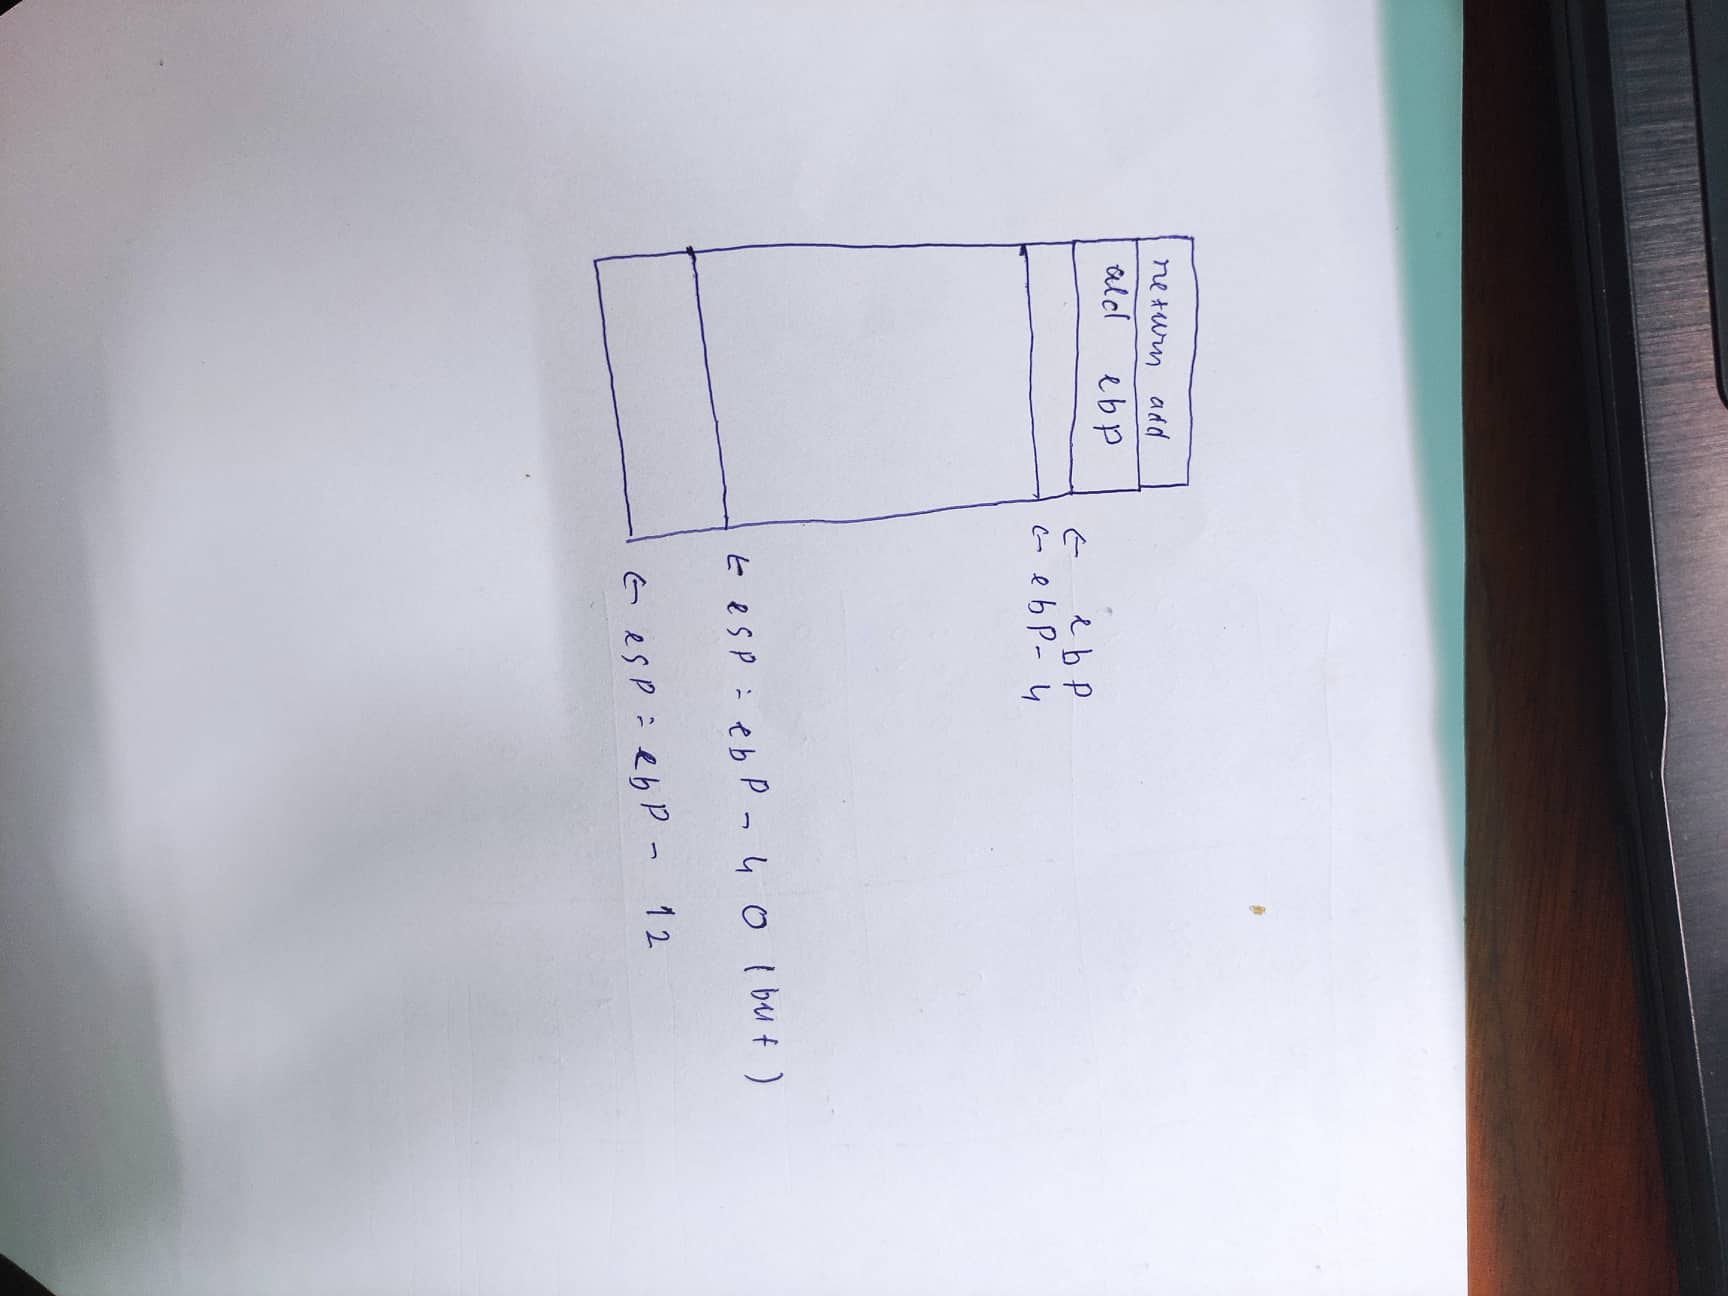 return add
old ebp
← ebp
← ebp - 4
← esp = ebp - 40 (but)
← esp = ebp - 12